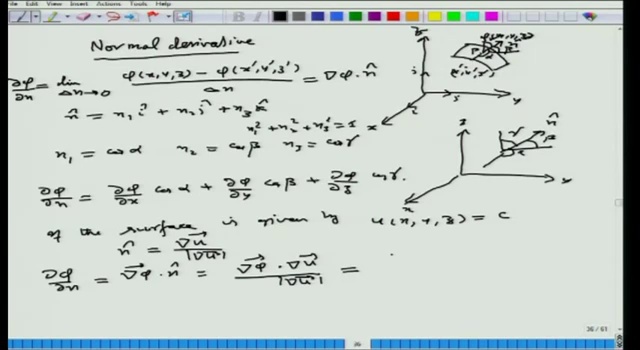 File Edit View Insert Actions Tools Help
Normal derivative
∂φ/∂n = lim Δn→0 (φ(x,y,z) − φ(x',y',z'))/Δn = ∇φ·n̂
n̂ = n₁ î + n₂ ĵ + n₃ k̂
n₁² + n₂² + n₃² = 1
n₁ = cosα n₂ = cosβ n₃ = cosγ
∂φ/∂n = ∂φ/∂x cosα + ∂φ/∂y cosβ + ∂φ/∂z cosγ.
of the surface is given by u(x,y,z) = c
n̂ = ∇u/|∇u|
∂φ/∂n = ∇φ·n̂ = ∇φ·∇u/|∇u| =
z
y
x
z
n̂
γ
β
α
y
x
36 / 61
36